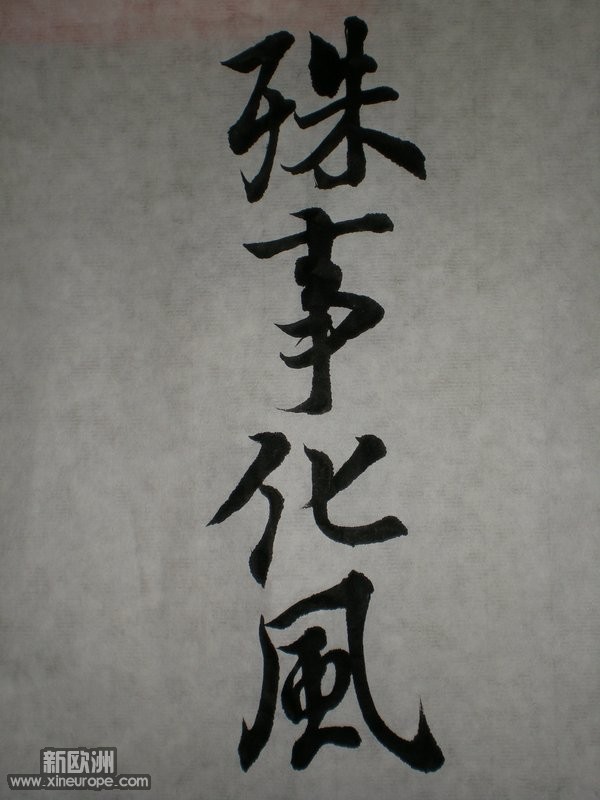 殊事化風
新欧洲
www.xineurope.com